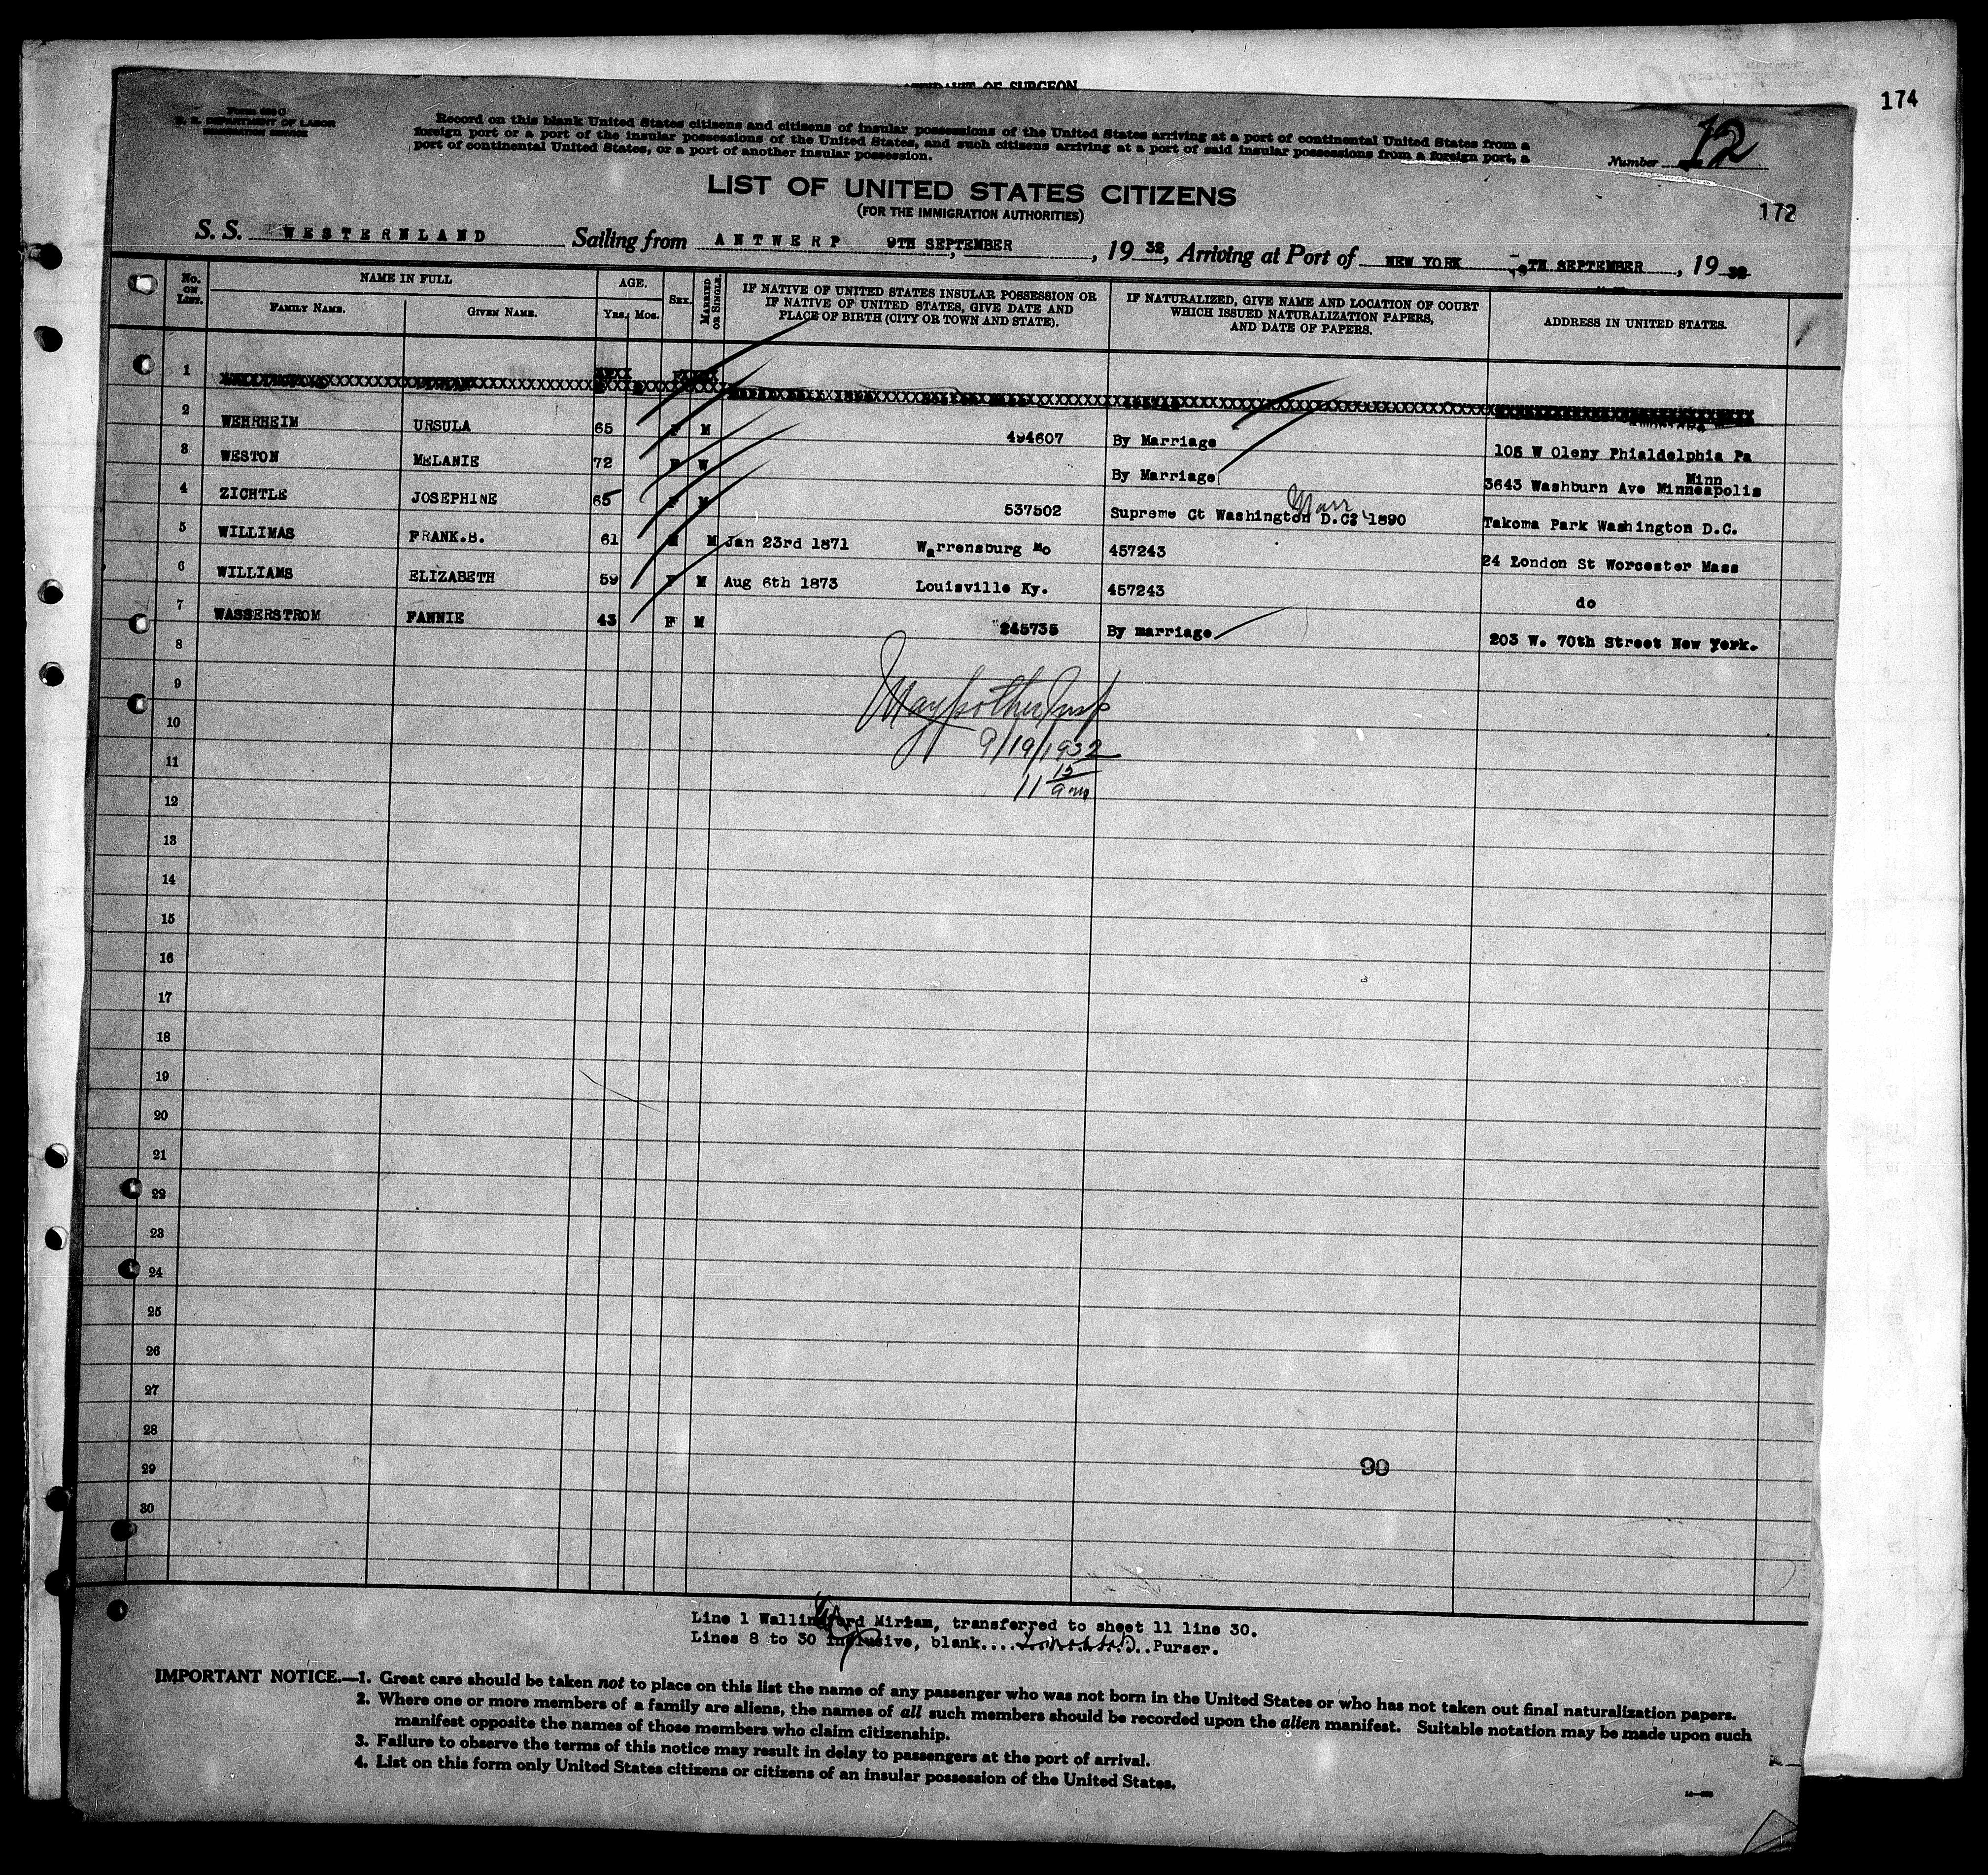 AFFIDAVIT OF SURGEON
174
U. S. DEPARTMENT OF LABOR
IMMIGRATION SERVICE
Record on this blank United States citizens and citizens of insular possessions of the United States arriving at a port of continental United States from a
foreign port or a port of the insular possessions of the United States, and such citizens arriving at a port of said insular possessions from a foreign port, a
port of continental United States, or a port of another insular possession.
Number 12
LIST OF UNITED STATES CITIZENS
(FOR THE IMMIGRATION AUTHORITIES)
172
S. S. WESTERNLAND Sailing from ANTWERP 9TH SEPTEMBER, 1932, Arriving at Port of NEW YORK TH SEPTEMBER, 1932
No. ON LIST. NAME IN FULL FAMILY NAME. GIVEN NAME. AGE. YRS. MOS. SEX. MARRIED OR SINGLE. IF NATIVE OF UNITED STATES INSULAR POSSESSION OR IF NATIVE OF UNITED STATES, GIVE DATE AND PLACE OF BIRTH (CITY OR TOWN AND STATE). IF NATURALIZED, GIVE NAME AND LOCATION OF COURT WHICH ISSUED NATURALIZATION PAPERS, AND DATE OF PAPERS. ADDRESS IN UNITED STATES.
1
2 WEHRHEIM URSULA 65 F M 494607 By Marriage 105 W Oleny Phialdelphia Pa
3 WESTON MELANIE 72 F W By Marriage 3643 Washburn Ave Minneapolis Minn
4 ZICHTLE JOSEPHINE 65 F M 537502 Supreme Ct Washington D.C: 1890 Marr Takoma Park Washington D.C.
5 WILLIMAS FRANK.B. 61 M M Jan 23rd 1871 Warrensburg Mo 457243 24 London St Worcester Mass
6 WILLIAMS ELIZABETH 59 F M Aug 6th 1873 Louisville Ky. 457243 do
7 WASSERSTROM FANNIE 43 F M 245735 By marriage 203 W. 70th Street New York.
8
9
10
9/19/1932
11
11 15 am
12
13
14
15
16
17
18
19
20
21
22
23
24
25
26
27
28
29
90
30
Line 1 Wallingford Miriam, transferred to sheet 11 line 30.
Lines 8 to 30 inclusive, blank.... Purser.
IMPORTANT NOTICE.—1. Great care should be taken not to place on this list the name of any passenger who was not born in the United States or who has not taken out final naturalization papers.
2. Where one or more members of a family are aliens, the names of all such members should be recorded upon the alien manifest. Suitable notation may be made upon such
manifest opposite the names of those members who claim citizenship.
3. Failure to observe the terms of this notice may result in delay to passengers at the port of arrival.
4. List on this form only United States citizens or citizens of an insular possession of the United States.